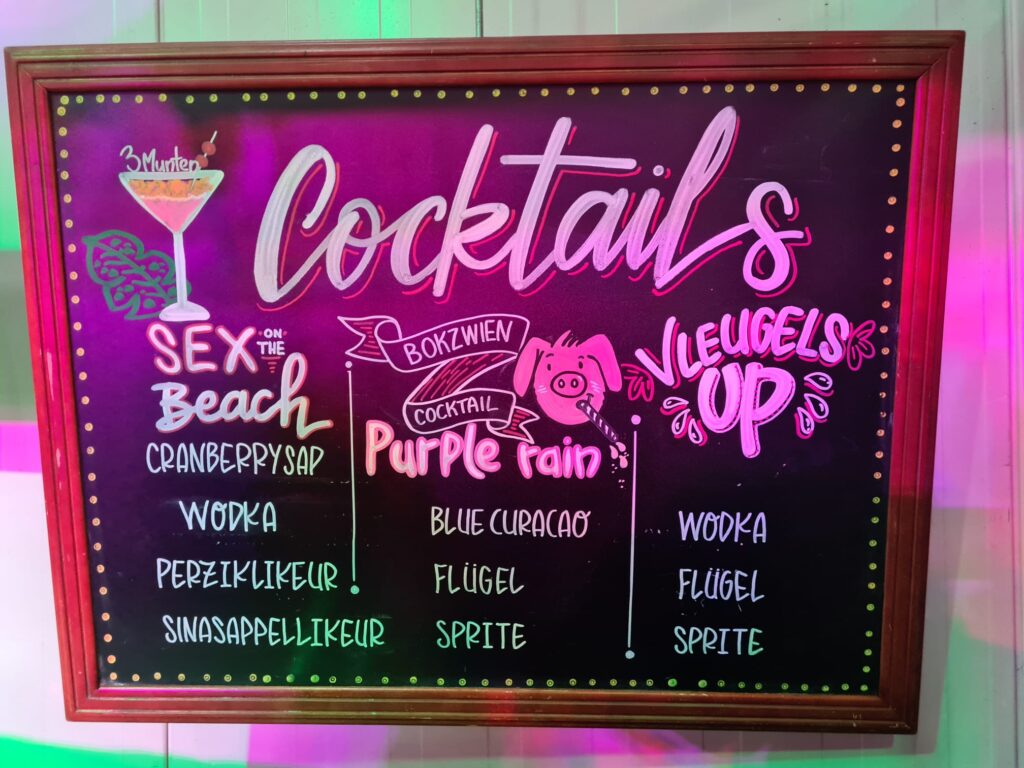 3 Munten
Cocktails
SEX ON THE
Beach
CRANBERRYSAP
WODKA
PERZIKLIKEUR
SINASAPPELLIKEUR
BOKZWIEN
COCKTAIL
Purple rain
BLUE CURACAO
FLÜGEL
SPRITE
VLEUGELS
UP
WODKA
FLÜGEL
SPRITE